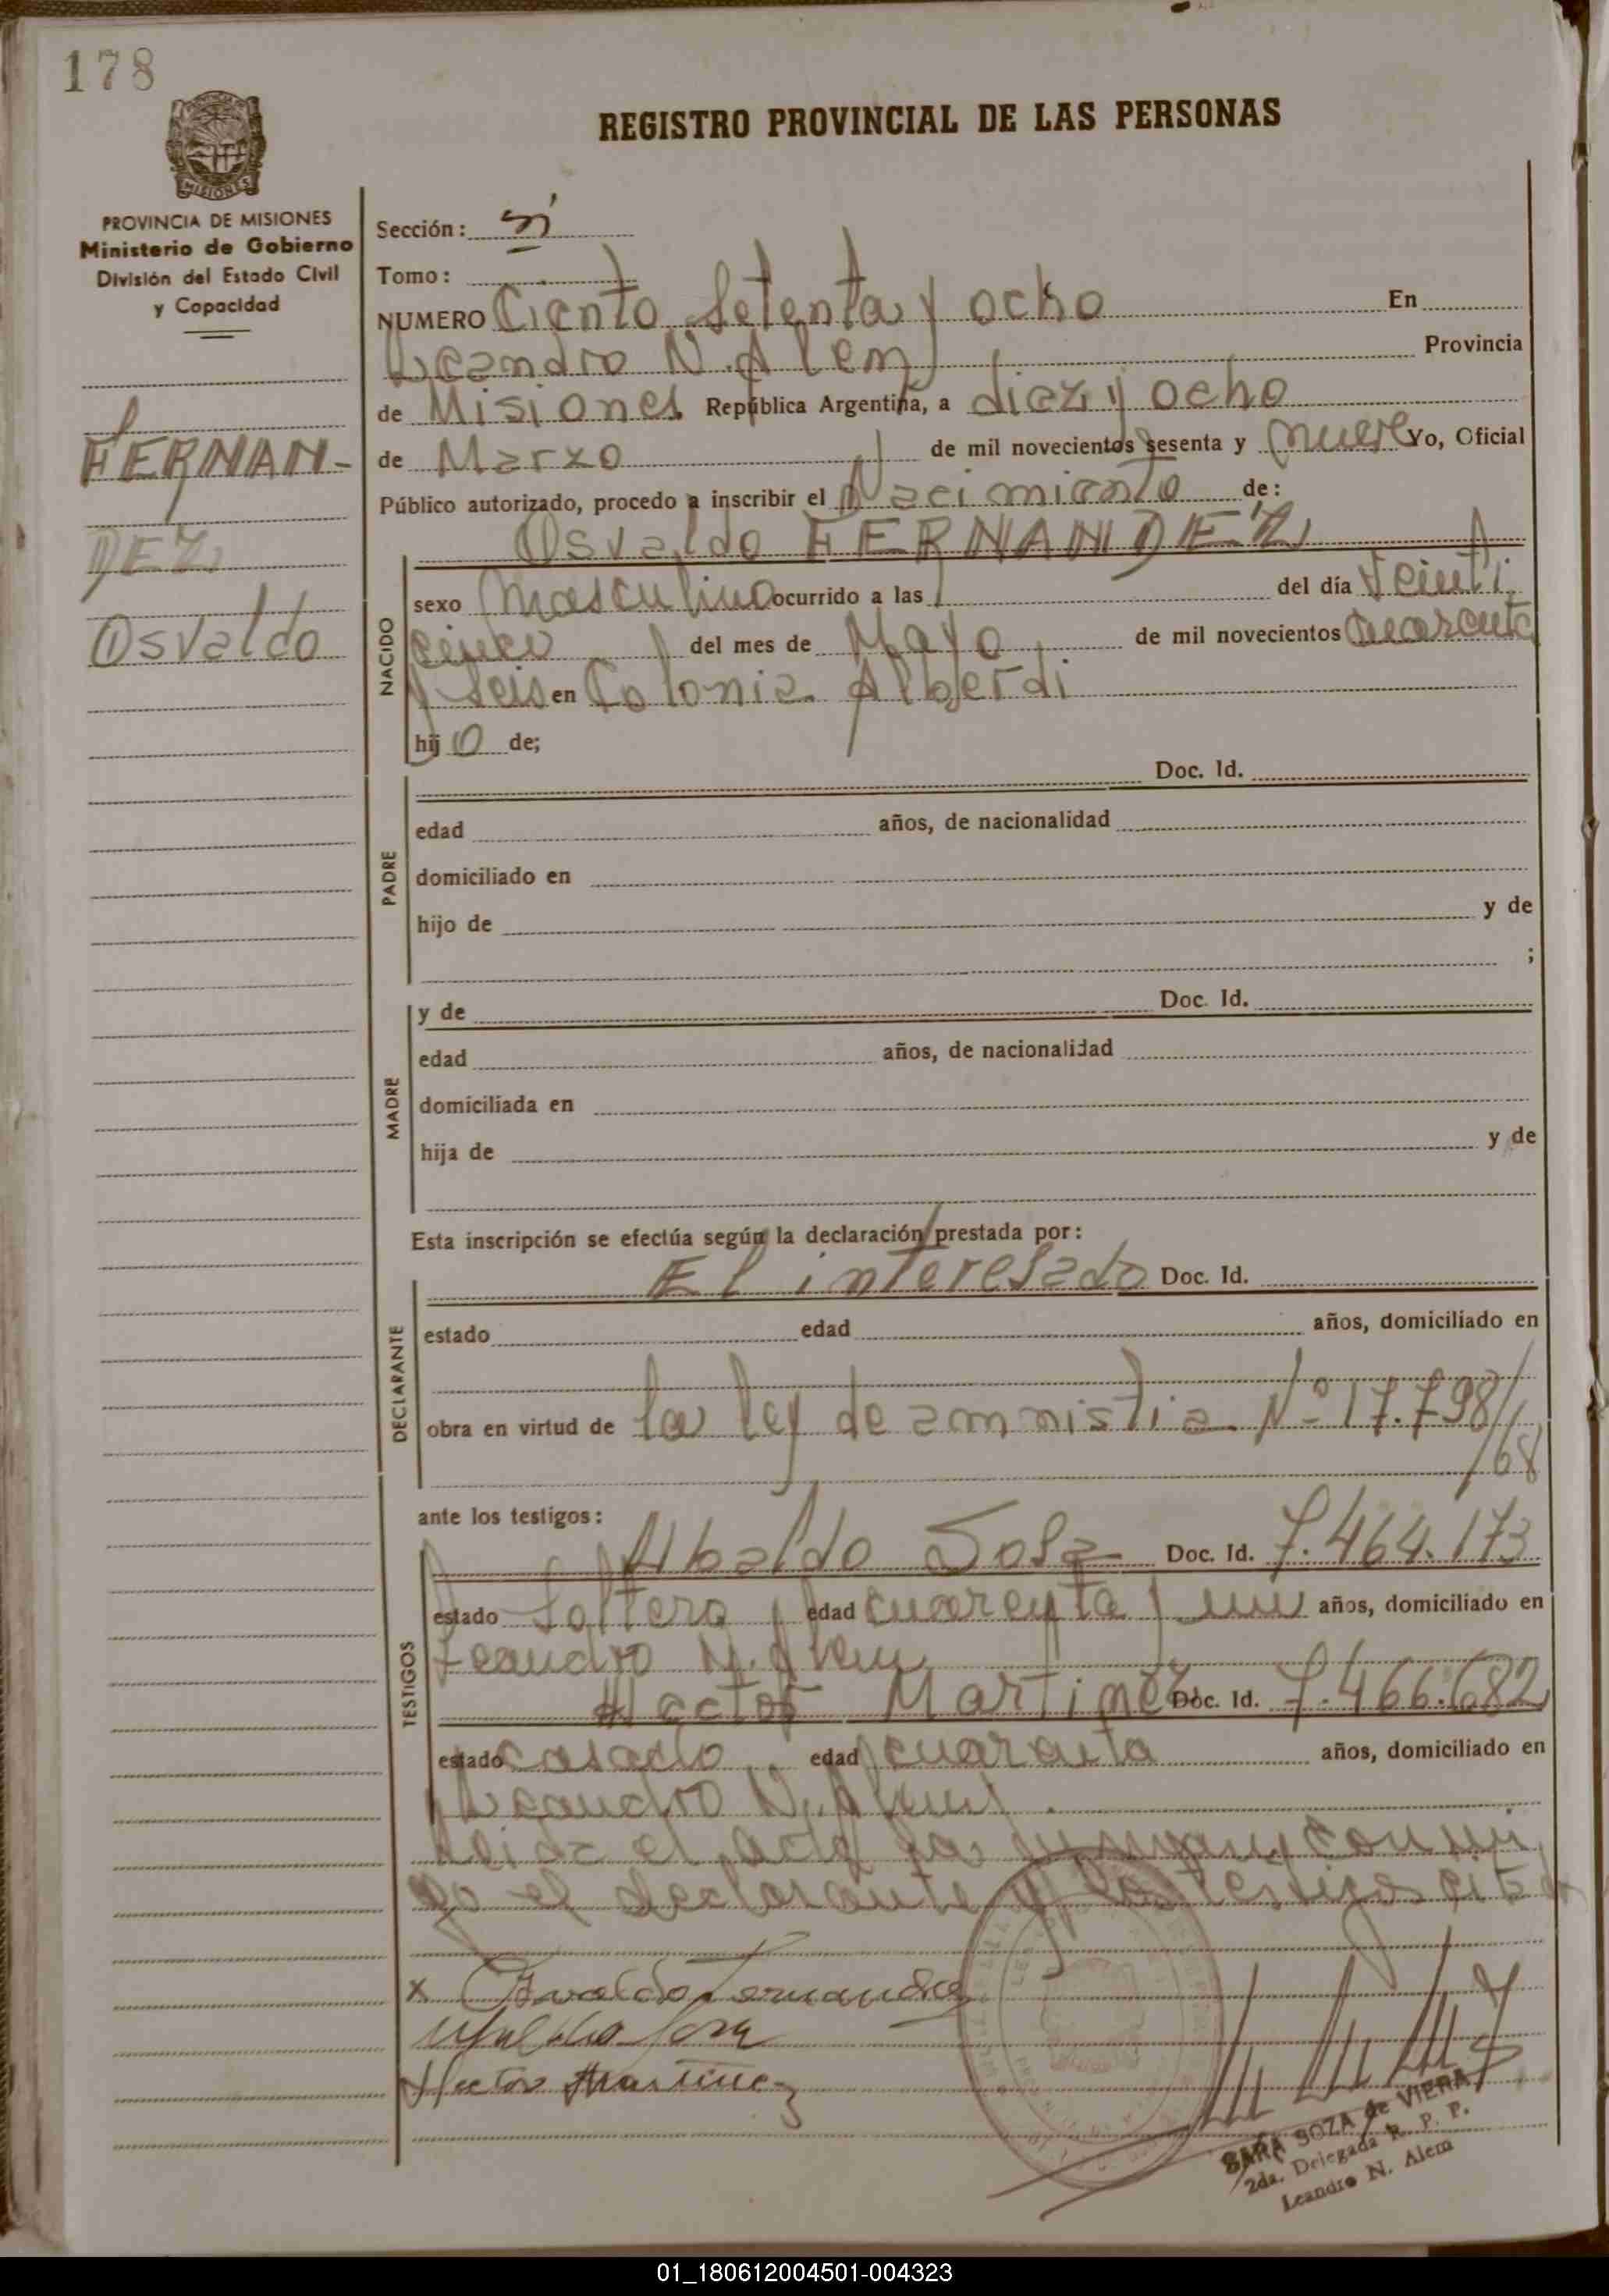 178
REGISTRO PROVINCIAL DE LAS PERSONAS
MISIONES
PROVINCIA DE MISIONES
Ministerio de Gobierno
División del Estado Civil
y Capacidad
FERNAN-
DEZ
Osvaldo
Sección:
Tomo:
NUMERO Ciento Setenta y ocho En
Leandro N. Alem Provincia
de Misiones República Argentina, a diez y ocho
de Marzo de mil novecientos sesenta y nueve Yo, Oficial
Público autorizado, procedo a inscribir el Nacimiento de:
Osvaldo FERNANDEZ
NACIDO
sexo Masculino ocurrido a las del día Veinti
cinco del mes de Mayo de mil novecientos cuarenta
y Seis en Colonia Alberdi
hij o de;
PADRE
Doc. Id.
edad años, de nacionalidad
domiciliado en
hijo de y de
;
MADRE
y de Doc. Id.
edad años, de nacionalidad
domiciliada en
hija de y de
Esta inscripción se efectúa según la declaración prestada por:
DECLARANTE
El interesado Doc. Id.
estado edad años, domiciliado en
obra en virtud de la ley de amnistia Nº 17.798/
/68
ante los testigos:
TESTIGOS
Ubaldo Sosa Doc. Id. 7.464.173
estado Soltero edad cuarenta y un años, domiciliado en
Leandro N. Alem
Hector Martinez Doc. Id. 7.466.682
estado casado edad cuarenta años, domiciliado en
Leandro N. Alem
Leida el acta la con mi
go el declarante y los testigos citad
x Osvaldo Fernandez
Ubaldo Sosa
Hector Martinez
SARA SOZA de VIERA
2da. Delegada R. P. P.
Leandro N. Alem
01_180612004501-004323